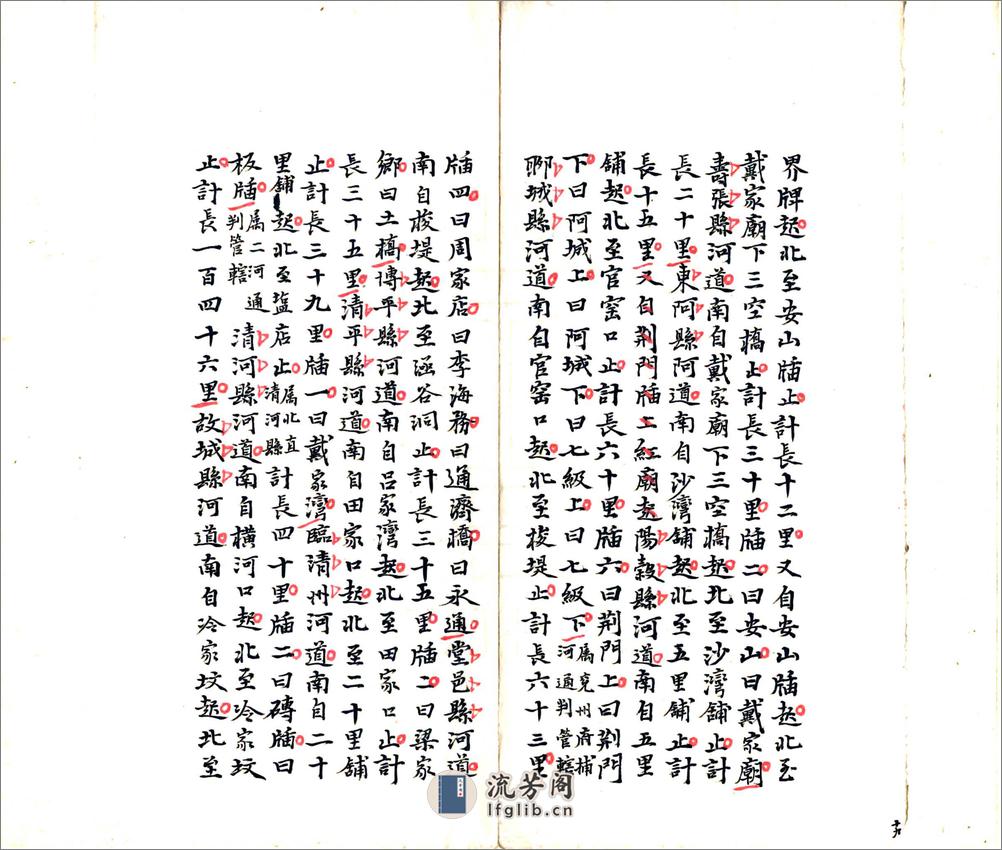 界牌起北至安山牐止計長十二里又自安山牐起北至
戴家廟下三空橋止計長三十里牐二曰安山曰戴家廟
壽張縣河道南自戴家廟下三空橋起北至沙灣舖止計
長二十里東阿縣河道南自沙灣舖起北至五里舖止計
長十五里又自荆門牐上紅廟起陽穀縣河道南自五里
舖起北至官窑口止計長六十里牐六曰荆門上曰荆門
下曰阿城上曰阿城下曰七級上曰七級下属兖州府捕河通判管轄
聊城縣河道南自官窑口起北至梭堤止計長六十三里
牐四曰周家店曰李海務曰通濟橋曰永通堂邑縣河道
南自梭堤起北至涵谷洞止計長三十五里牐二曰梁家
鄉曰土橋博平縣河道南自吕家灣起北至田家口止計
長三十五里清平縣河道南自田家口起北至二十里舖
止計長三十九里牐一曰戴家灣臨清州河道南自二十
里舖起北至塩店止属北直清河縣計長四十里牐二曰磚牐曰
板牐属二河通判管轄清河縣河道南自橫河口起北至冷家坟
止計長一百四十六里故城縣河道南自冷家坟起北至
流芳阁
lfglib.cn